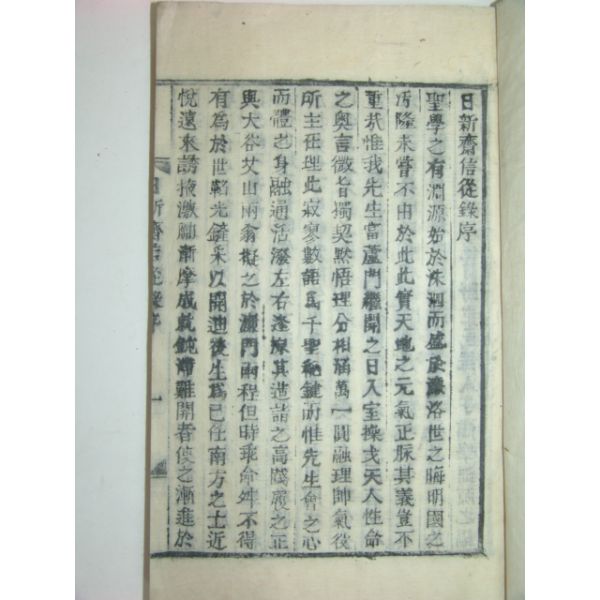 日新齋信從錄序
聖學之有淵源始於洙泗而盛於濂洛世之晦明國之
汚隆未嘗不由於此此實天地之元氣正脉其義豈不
重哉惟我先生當蘆門繼開之日入室操戈天人性命
之奧言微旨獨契默悟理分相涵萬一圓融理帥氣役
所主在理此寂寥數語爲千聖秘鍵而惟先生會之心
而體之身融通活潑左右逢原其造詣之高踐履之正
與大谷艾山兩翁擬之於濂門兩程但時乖命舛不得
有爲於世韜光鏟采以開迪後生爲己任南方之士近
悅遠來誘掖激勵漸摩成就鈍滯難開者使之漸進於
日新齋信從錄序 一